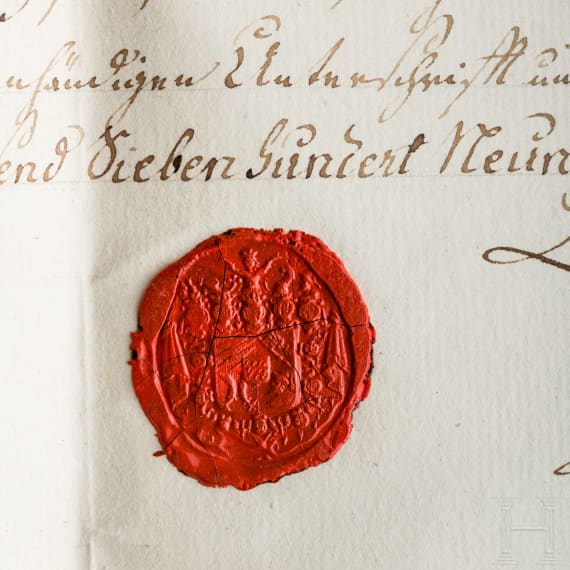 nhändigen Unterschrifft un
end Sieben hundert Neun
H